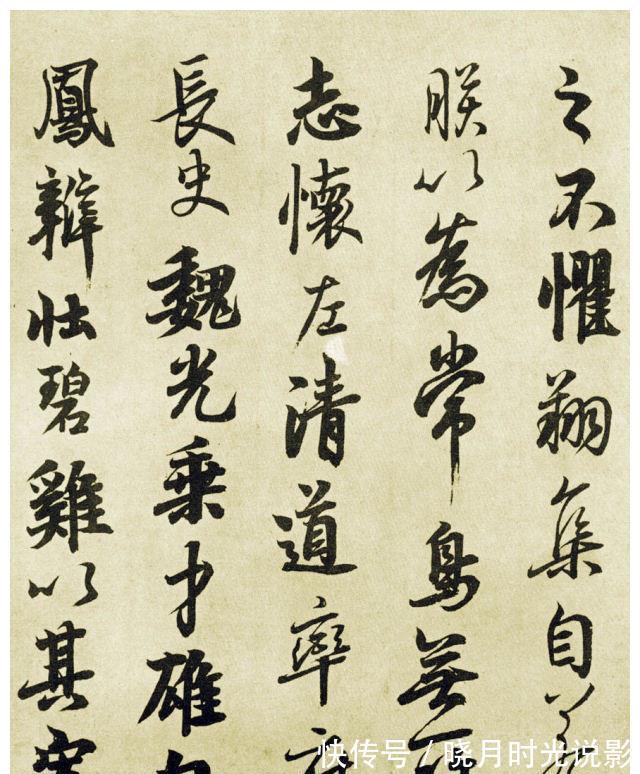 之不懼翔集自
朕以為常鳥無
志懷左清道率
長史魏光乘才雄
鳳辯壯碧雞以其
快传号 / 晓月时光说影